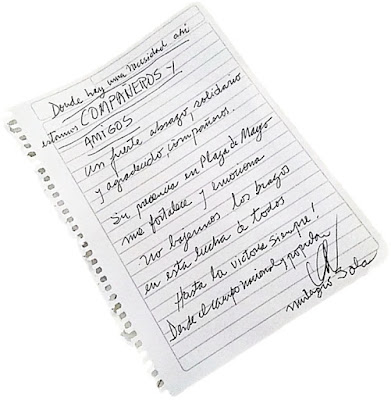 Donde hay una necesidad ahí
estamos COMPAÑEROS Y
AMIGOS
Un fuerte abrazo, solidario
y agradecido, compañeros.
Su presencia en Plaza de Mayo
me fortalece y emociona
No bajemos los brazos
en esta lucha de todos
Hasta la victoria siempre!
Desde el campo nacional y popular
Milagro Sala